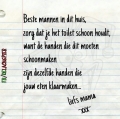 Beste mannen in dit huis,
zorg dat je het toilet schoon houdt,
want de handen die dit moeten
schoonmaken
zijn dezelfde handen die
jouw eten klaarmaken...
liefs mama
xxx